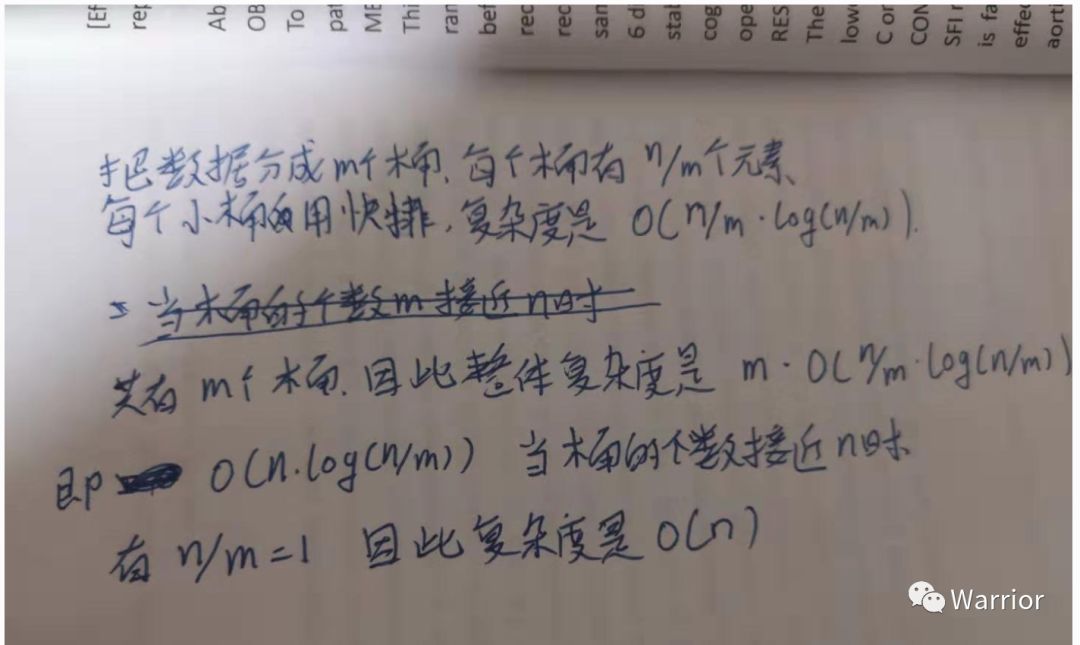 [Ef
rep
Ab
OB
To
pat
ME
Thi
ran
bef
rec
rec
sam
6 di
stat
cog
ope
RES
The
lowe
C or
CON
SFI r
is fa
effec
aorti
把数据分成m个桶、每个桶有 n/m个元素、
每个小桶内用快排,复杂度是 O(n/m·log(n/m)).
当桶的个数m接近n时
共有 m个桶,因此整体复杂度是 m·O(n/m·log(n/m))
即 O(n·log(n/m)) 当桶的个数接近n时
有 n/m=1 因此复杂度是 O(n)
Warrior